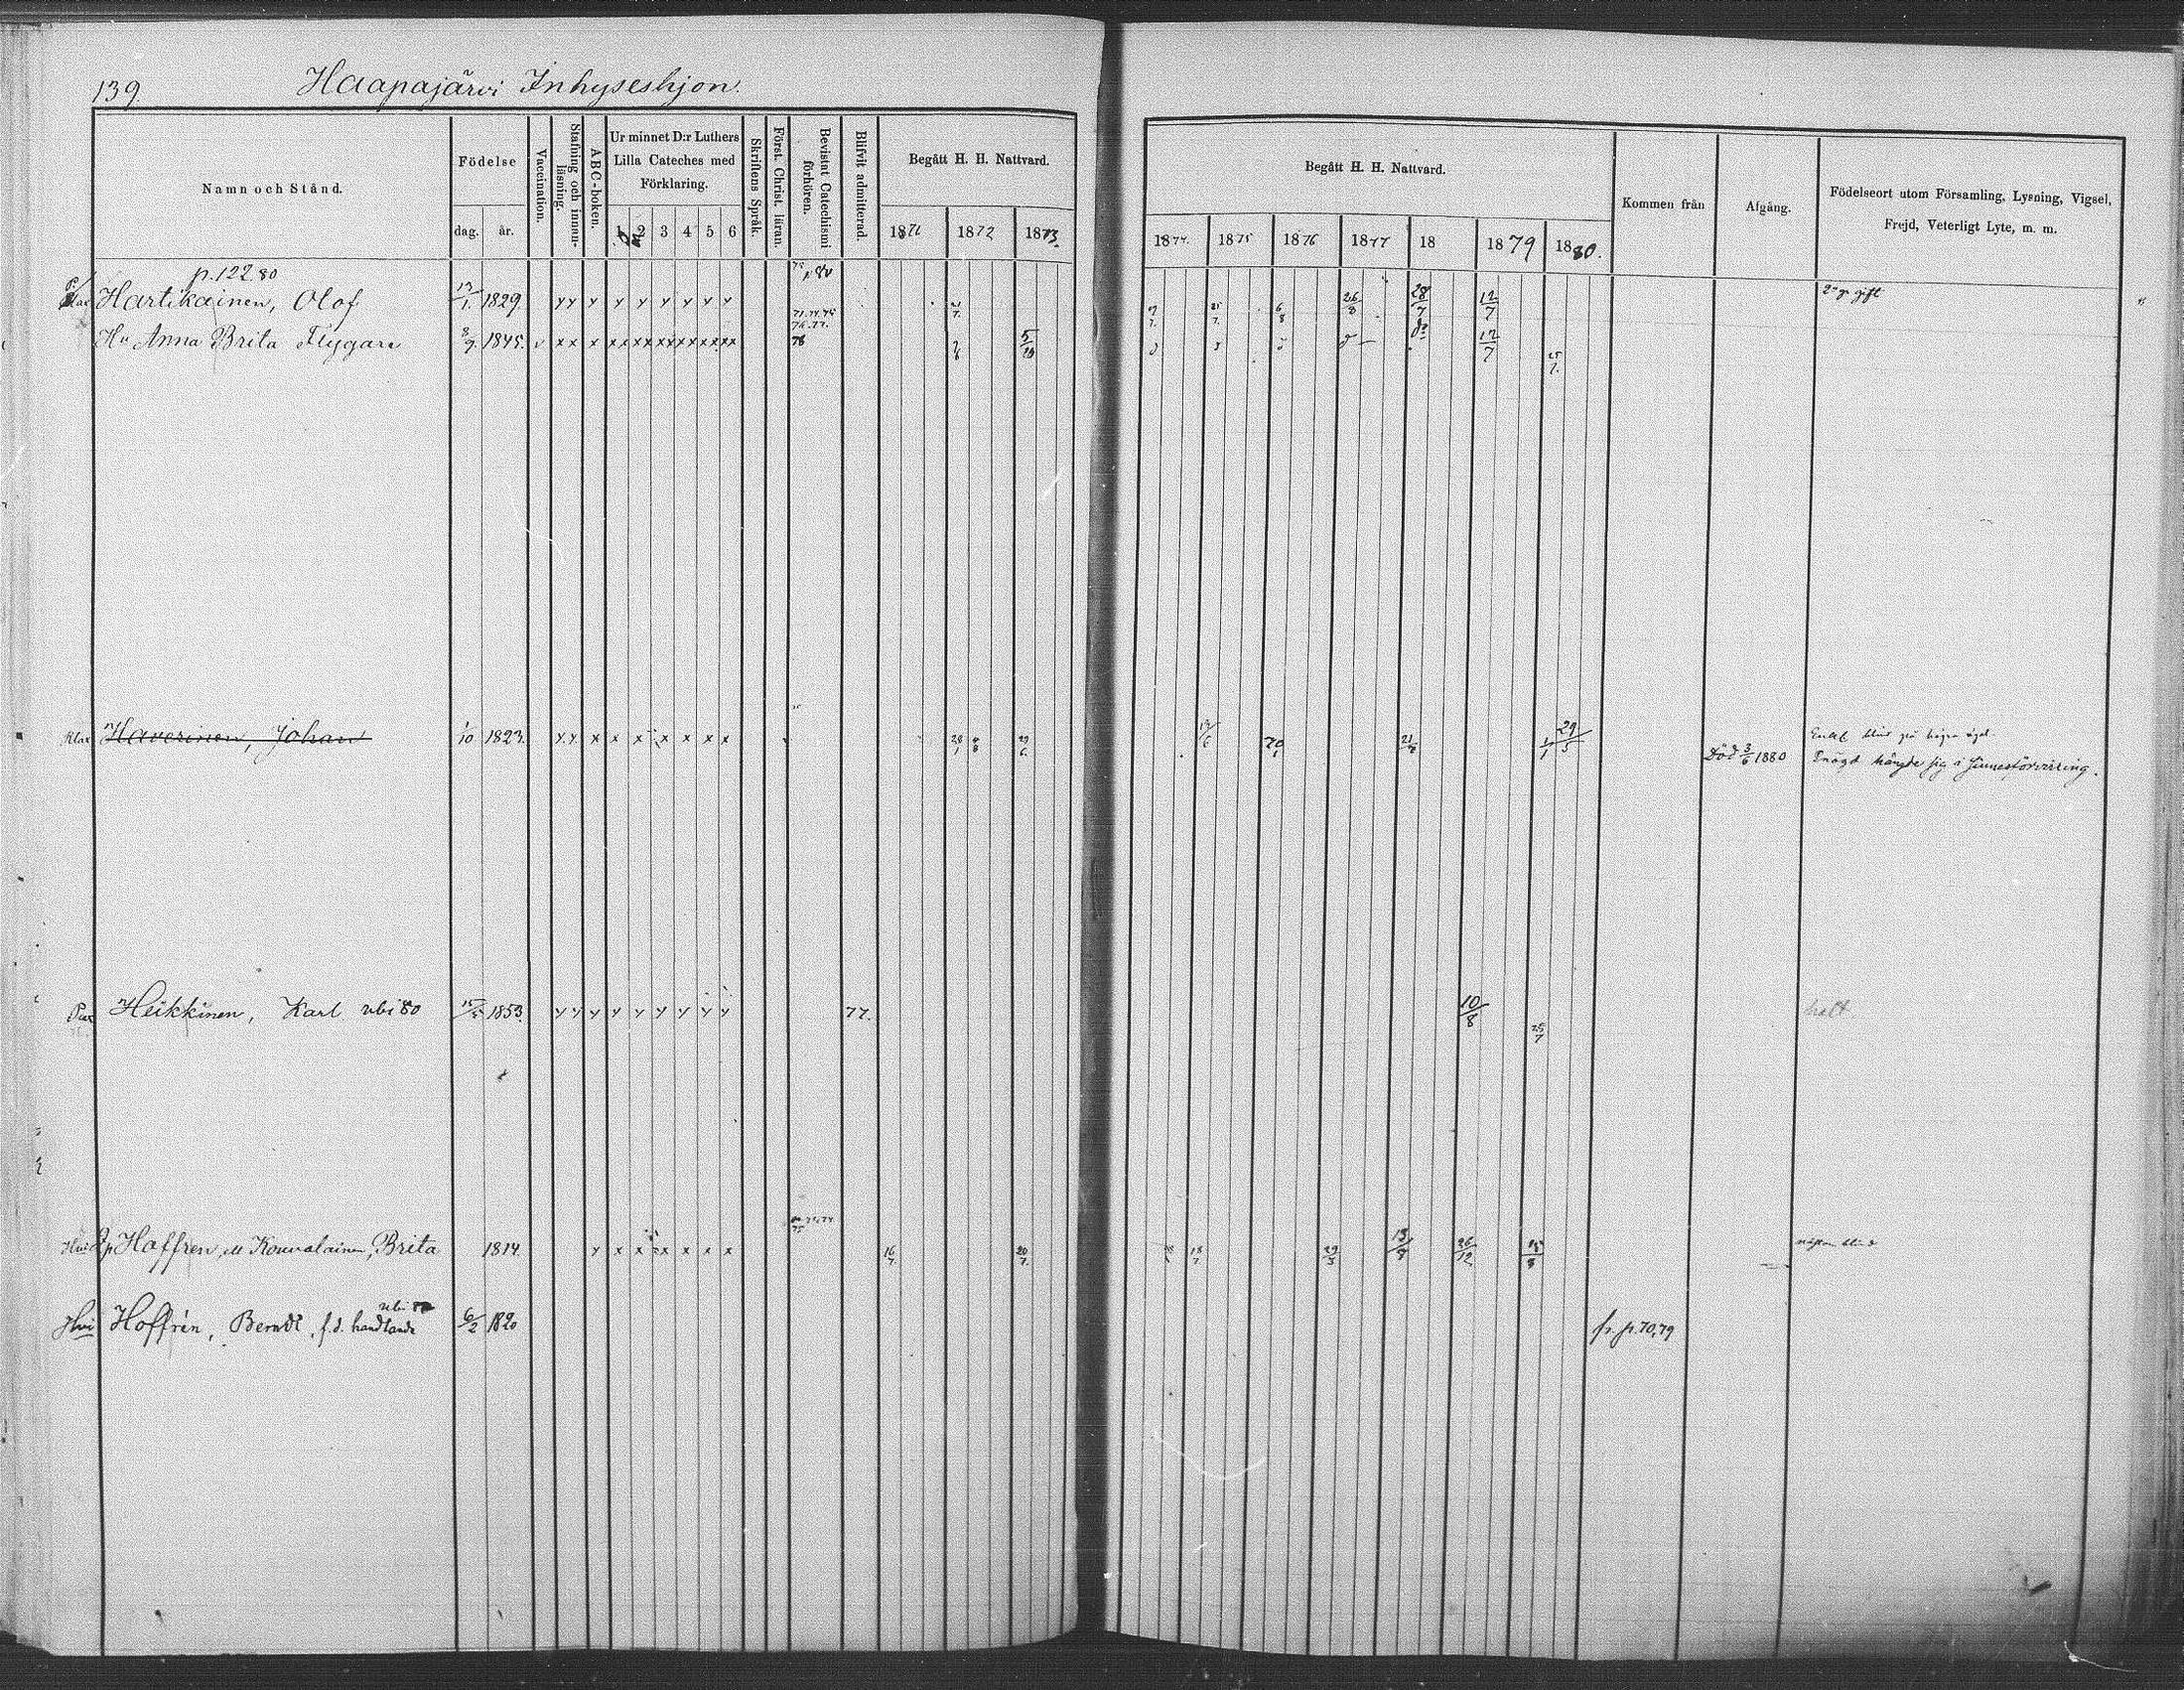 139.
Haapajärvi Inhyseshjon.
Namn och Stånd.
Födelse
dag.
år.
Vaccination.
Stafning och innan-
läsning.
ABC-boken.
Ur minnet D:r Luthers
Lilla Cateches med
Förklaring.
1 2 3 4 5 6
Skriftens Språk.
Först. Christ. läran.
Bevistat Catechismi
förhören.
Blifvit admitterad.
Begått H. H. Nattvard.
1871 1872 1873.
Begått H. H. Nattvard.
1874. 1875 1876 1877 18 1879 1880.
Kommen från
Afgång.
Födelseort utom Församling, Lysning, Vigsel,
Frejd, Veterligt Lyte, m. m.
p. 122 80
Hartikainen, Olof 1829. 26/8 28/7 12/7 2 gr gift
Hu Anna Brita Flygare 8/9. 1845. 5/10 12/7 25/7.
Klax Haverinen, Johan 1/10 1823. 29/5 Död 3/6 1880
hängde sig i sinnesförvirring.
Heikkinen, Karl ubi 80 1853. 77. 10/8 25/7 halt.
Hoffren, Kouvalainen, Brita 1814 16/7. 20/7. 13/8 26/12
nästan blind
Hvi Hoffrén, Berndt, f.d. handlande 6/2 1820 fr. p. 70,79